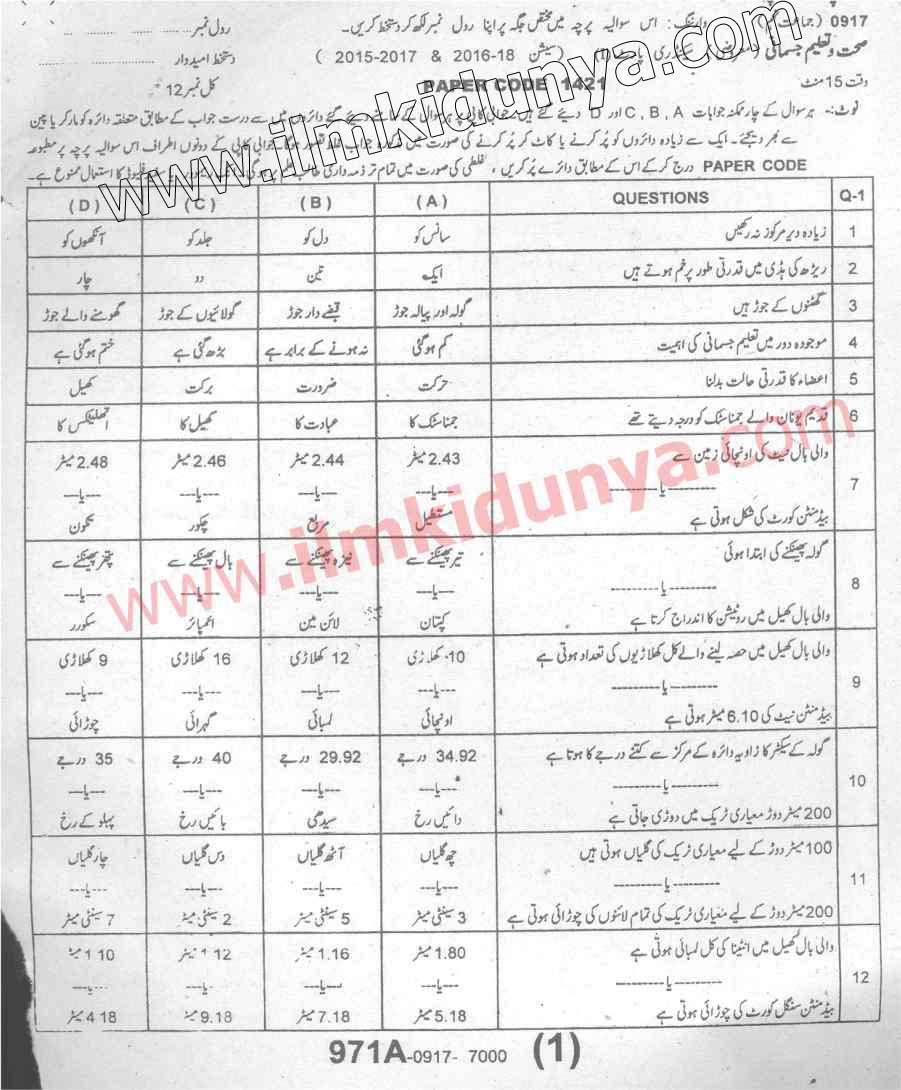 0917 (جماعت نہم) وارننگ: اس سوالیہ پرچہ میں مختص جگہ پر اپنا رول نمبر لکھ کر دستخط کریں۔ رول نمبر
صحت و تعلیم جسمانی سیکنڈری (سیشن 2016-18 & 2015-2017) دستخط امیدوار
وقت 15 منٹ PAPER CODE 1421 کل نمبر 12
نوٹ:- ہر سوال کے چار ممکنہ جوابات A ، B ، C اور D دیئے گئے ہیں۔ جوابی کاپی پر ہر سوال کے سامنے دیئے گئے دائروں میں سے درست جواب کے مطابق متعلقہ دائرہ کو مارکر یا پین
سے بھر دیجئے۔ ایک سے زیادہ دائروں کو پُر کرنے یا کاٹ کر پُر کرنے کی صورت میں مذکورہ جواب غلط تصور ہوگا۔ جوابی کاپی کے دونوں اطراف اس سوالیہ پرچہ پر مطبوعہ
PAPER CODE درج کر کے اس کے مطابق دائرے پُر کریں، غلطی کی صورت میں تمام تر ذمہ داری طالب علم پر ہوگی۔ فلیوڈ کا استعمال ممنوع ہے۔
www.ilmkidunya.com
Q-1 QUESTIONS (A) (B) (C) (D)
1 زیادہ دیر مرکوز نہ رکھیں سانس کو دل کو جلد کو آنکھوں کو
2 ریڑھ کی ہڈی میں قدرتی طور پر خم ہوتے ہیں ایک تین دو چار
3 گھٹنوں کے جوڑ ہیں گولہ اور پیالہ جوڑ قبضے دار جوڑ گولائیوں کے جوڑ گھومنے والے جوڑ
4 موجودہ دور میں تعلیم جسمانی کی اہمیت کم ہو گئی نہ ہونے کے برابر ہے بڑھ گئی ہے ختم ہو گئی ہے
5 اعضاء کا قدرتی حالت بدلنا حرکت ضرورت برکت کھیل
6 قدیم یونان والے جمناسٹک کو درجہ دیتے تھے جمناسٹک کا عبادت کا کھیل کا اتھلیٹکس کا
www.ilmkidunya.com
والی بال نیٹ کی اونچائی زمین سے 2.43 میٹر 2.44 میٹر 2.46 میٹر 2.48 میٹر
7 ---------یا--------- ---یا--- ---یا--- ---یا--- ---یا---
بیڈمنٹن کورٹ کی شکل ہوتی ہے مستطیل مربع چکور تکون
گولہ پھینکنے کی ابتدا ہوئی تیر پھینکنے سے نیزہ پھینکنے سے بال پھینکنے سے پتھر پھینکنے سے
8 ---------یا--------- ---یا--- ---یا--- ---یا--- ---یا---
والی بال کھیل میں روٹیشن کا اندراج کرتا ہے کپتان لائن مین امپائر سکورر
والی بال کھیل میں حصہ لینے والے کل کھلاڑیوں کی تعداد ہوتی ہے 10 کھلاڑی 12 کھلاڑی 16 کھلاڑی 9 کھلاڑی
9 ---------یا--------- ---یا--- ---یا--- ---یا--- ---یا---
بیڈمنٹن نیٹ کی 6.10 میٹر ہوتی ہے اونچائی لمبائی گہرائی چوڑائی
گولہ کے سیکٹر کا زاویہ دائرہ کے مرکز سے کتنے درجے کا ہوتا ہے 34.92 درجے 29.92 درجے 40 درجے 35 درجے
10 ---------یا--------- ---یا--- ---یا--- ---یا--- ---یا---
200 میٹر دوڑ معیاری ٹریک میں دوڑی جاتی ہے دائیں رخ سیدھی بائیں رخ پہلو کے رخ
100 میٹر دوڑ کے لیے معیاری ٹریک کی گلیاں ہوتی ہیں چھ گلیاں آٹھ گلیاں دس گلیاں چار گلیاں
11 ---------یا--------- ---یا--- ---یا--- ---یا--- ---یا---
200 میٹر دوڑ کے لیے معیاری ٹریک کی تمام لائنوں کی چوڑائی ہوتی ہے 3 سینٹی میٹر 5 سینٹی میٹر 2 سینٹی میٹر 7 سینٹی میٹر
والی بال کھیل میں انٹینا کی کل لمبائی ہوتی ہے 1.80 میٹر 1.16 میٹر 1.12 میٹر 1.10 میٹر
12 ---------یا--------- ---یا--- ---یا--- ---یا--- ---یا---
بیڈمنٹن سنگل کورٹ کی چوڑائی ہوتی ہے 5.18 میٹر 7.18 میٹر 9.18 میٹر 4.18 میٹر
971A-0917- 7000 (1)